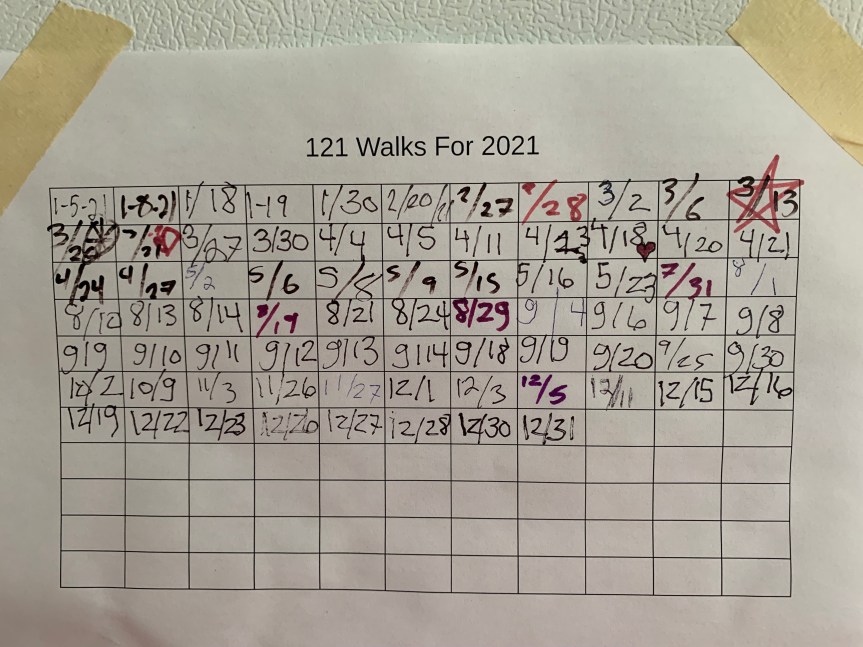 121 Walks For 2021
1-5-21 1-8-21 1/18 1-19 1/30 2/20/21 2/27 2/28 3/2 3/6 3/13
3/27 3/30 4/4 4/5 4/11 4/18 4/20 4/21
4/24 4/27 5/2 5/6 5/8 5/9 5/15 5/16 5/23 7/31 8/1
8/12 8/13 8/14 8/19 8/21 8/24 8/29 9/4 9/6 9/7 9/8
9/9 9/10 9/11 9/12 9/13 9/14 9/18 9/19 9/20 9/25 9/30
10/2 10/9 11/3 11/26 11/27 12/1 12/3 12/5 12/11 12/15 12/16
12/19 12/22 12/23 12/26 12/27 12/28 12/30 12/31